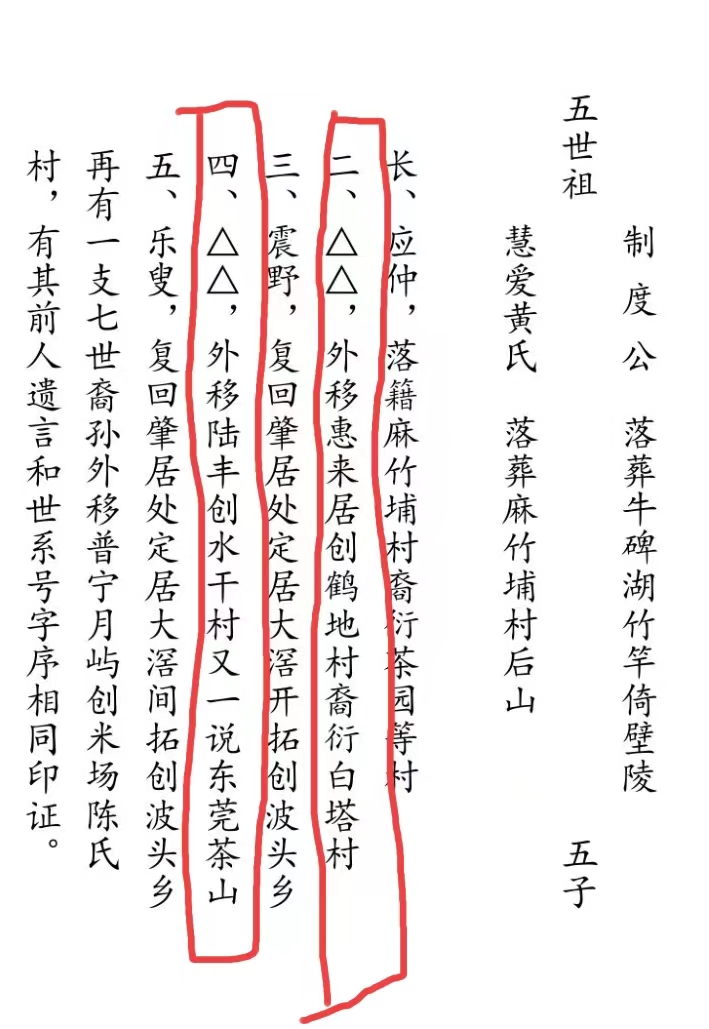 五世祖
制度公 落葬牛碑湖竹竿倚壁陵 五子
慧爱黄氏 落葬麻竹埔村后山
长、应仲，落籍麻竹埔村裔衍茶园等村
二、△△，外移惠来居创鹤地村裔衍白塔村
三、震野，复回肇居处定居大滘开拓创波头乡
四、△△，外移陆丰创水干村又一说东莞茶山
五、乐叟，复回肇居处定居大滘间拓创波头乡
再有一支七世裔孙外移普宁月屿创米场陈氏
村，有其前人遗言和世系号字序相同印证。